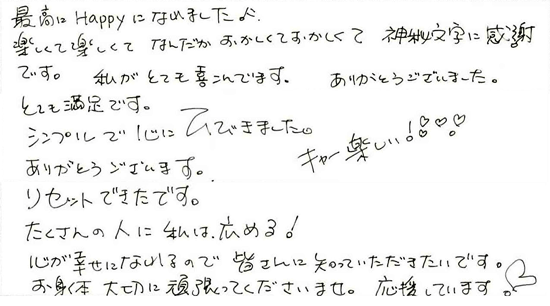 最高にHappyになれました♪
楽しくて楽しくて なんだか おかしくておかしくて 神秘文字に感謝
です。 私がとても喜こんでます。 ありがとうございました。
とても満足です。
シンプルで心に できました。
キャー楽しい!♡♡♡
ありがとうございます。
リセットできたです。
たくさんの人に私は広める!
心が幸せになれるので皆さんに知っていただきたいです。
お身体大切に頑張ってくださいませ。 応援しています♡